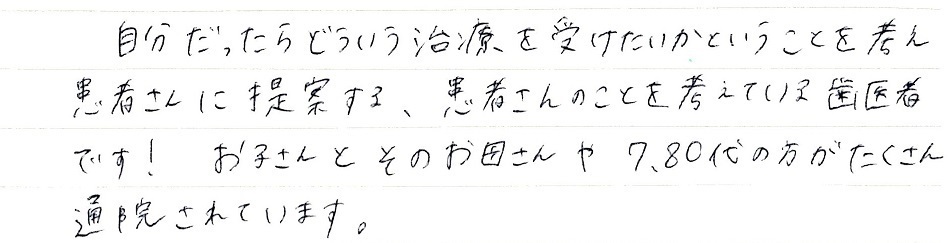 自分だったらどういう治療を受けたいかということを考え
患者さんに提案する、患者さんのことを考えている歯医者
です! お子さんとそのお母さんや7、80代の方がたくさん
通院されています。